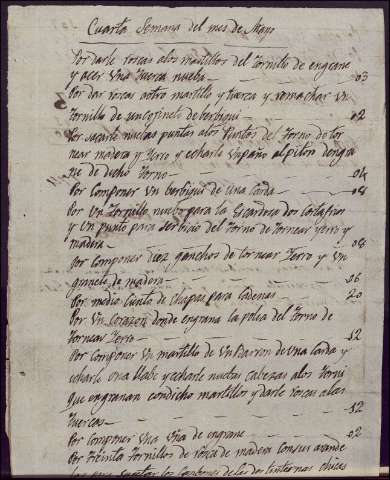 Cuarta Semana del mes de Mayo
Por darle roscas alos martillos del Tornillo de engrane
y acer Una Tuerca nueba — 03
Por dar roscas aotro martillo y tuerca y remachar Un
Tornillo de un berbiqui — 02
Por sacarle nuebas puntas alos Puntos del Torno de tor
near madera y Yerro y echarle Un paño al piñon de engra
ne de dicho Torno — 04
Por Componer Un berbiqui de Una Carda — 08
Por Un Tornillo nuebo para la dos Cortafrios
y Un punto para serbicio del Torno de Tornear yerro y
madera — 08
Por Componer Diez ganchos de tornear Yerro y Un
de madera — 06
Por media de Chapas para Cadenas — 20
Por Un Corazon donde engrana la polea del Torno de
Tornear Yerro — 12
Por Componer Un martillo de Un Barron de Una Carda y
echarle Una llabe y echarle nuebas Cabezas alos Torni
que engranan con dicho martillos y darle roscas alas
Tuercas — 12
Por Componer Una Uña de engrane — 02
Por Treinta Tornillos de rosca de madera Consus arande
los de las dos linternas chicas